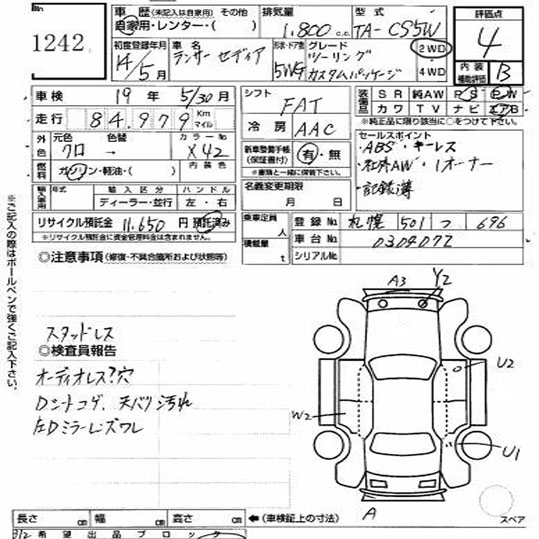 No.
1242
車歴 (未記入は自家用) その他
自家用・レンター・( )
排気量
1,800 c.c.
型式
TA-CS5W
評価点
4
初度登録年月
14/5月
車名
ランサー セディア
形状・ドア数
5WG
グレード
ツーリング
カスタムパッケージ
2WD
4WD
内装
補助評価
B
車検 19年 5/30月
走行 84,979 Km
マイル
外装
元色 色替 カラーNo
クロ → X42
燃料 ガソリン・軽油・( ) 内装色
輸入車用 年式 輸入区分 ハンドル
ディーラー・並行 左・右
リサイクル預託金 11,650円 預託済み
※リサイクル預託金に資金管理料金は含まれません。
シフト FAT
冷房 AAC
新車整備手帳
(保証書付) 有・無
(書類と一緒に保管して下さい。)
名義変更期限
月 日
装備品 SR 純AW PS PW
カワ TV ナビ エアB
※純正品に限り該当に○をつけて下さい。
セールスポイント
・ABS・キーレス
・社外AW・1オーナー
・記録簿
乗車定員 人
積載量 t
登録No. 札幌 501 つ 696
車台No. 0304072
シリアルNo.
◎注意事項 (修復・不具合箇所および状態等)
スタッドレス
◎検査員報告
オーディオレス?穴
Dシートコゲ、天バリ汚れ
左Dミラーレンズワレ
※ご記入の際はボールペンで強くご記入下さい。
A3
Y2
U2
W2
U1
A
スペア
長さ cm 幅 cm 高さ cm ←(車検証上の寸法)
希望出品ブロック